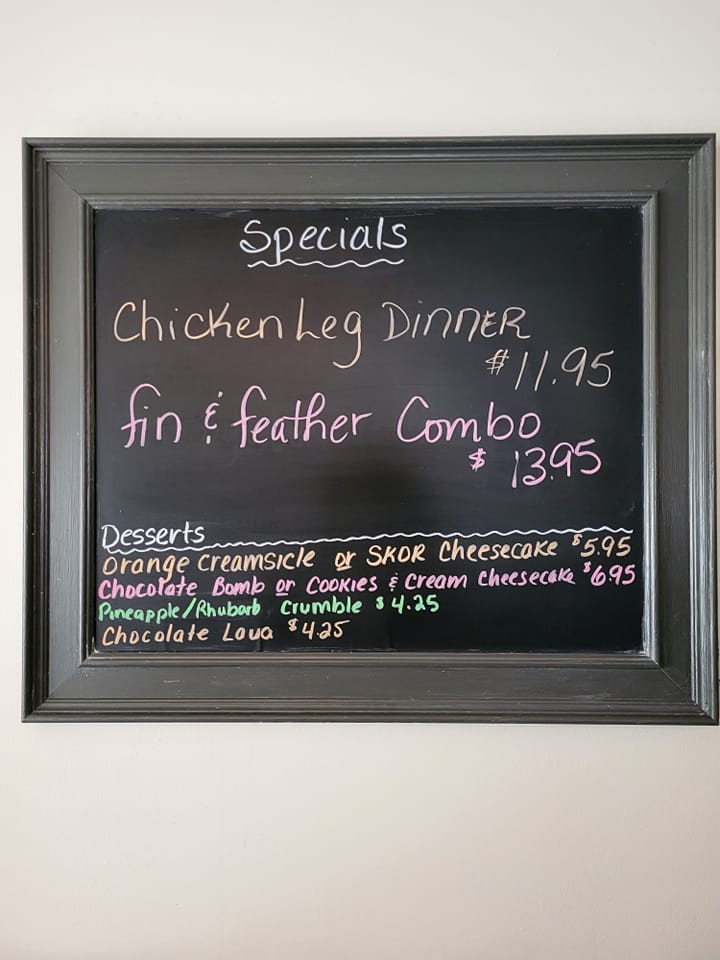 Specials
Chicken Leg DINNER
$11.95
fin & feather Combo
$ 13.95
Desserts
Orange Creamsicle or SKOR Cheesecake $5.95
Chocolate Bomb or Cookies & Cream Cheesecake $6.95
Pineapple/Rhubarb Crumble $4.25
Chocolate Lava $4.25